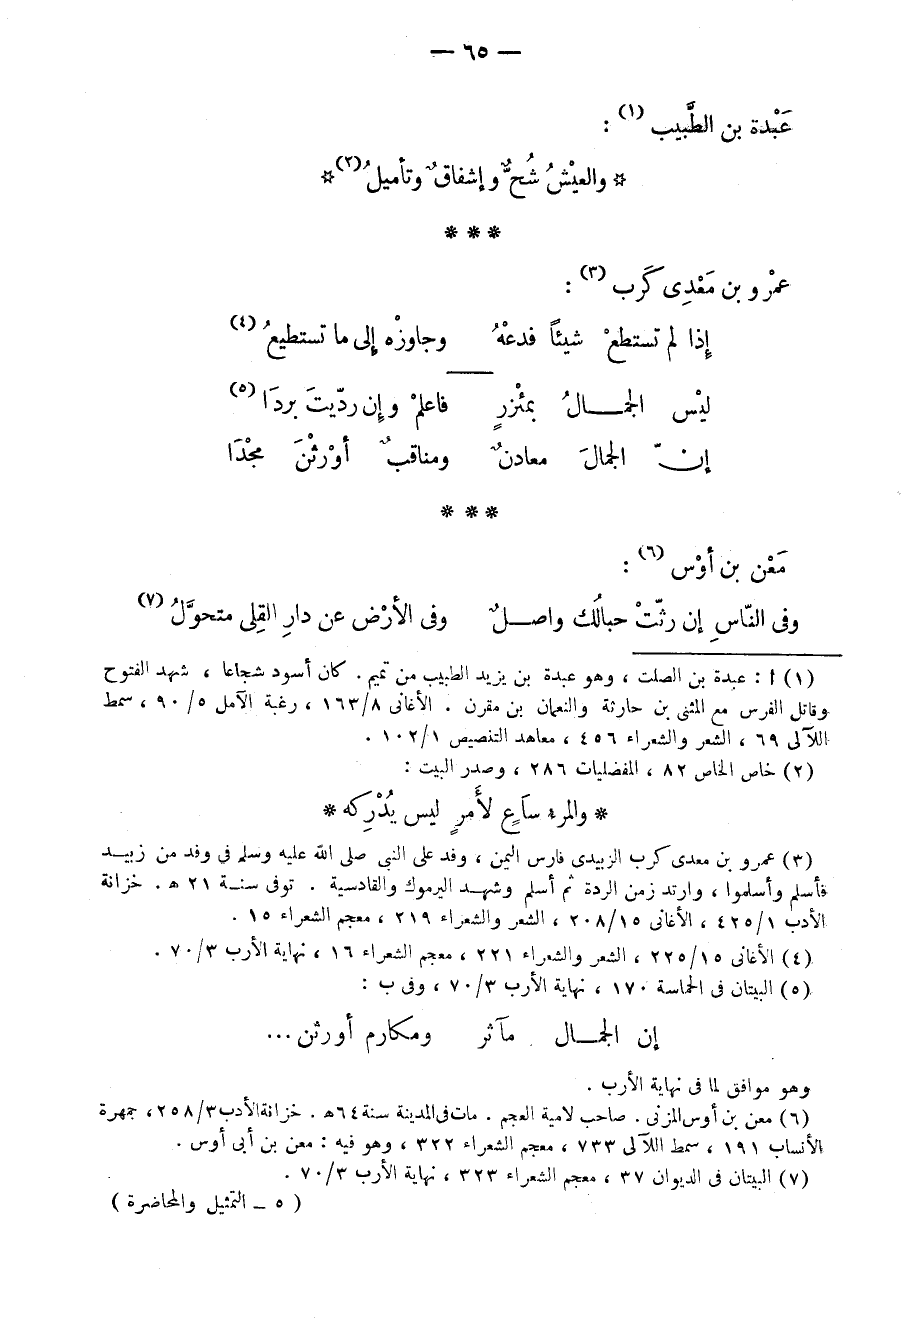 — ٦٥ —
عَبْدة بن الطَّبيب (١) :
* والعيْشُ شُحٌّ وإشفاقٌ وتأميلُ (٢) *
* * *
عمْرو بن مَعْدِى كَرِب (٣) :
إذا لم تستطعْ شيئاً فدعْهُ وجاوزْه إلى ما تستطيعُ (٤)
ليْس الجمـــالُ بمئْزرٍ فاعلمْ وإن ردّيتَ بردَا (٥)
إنّ الجمالَ معادنٌ ومناقبٌ أوْرثْنَ مجْدَا
* * *
مَعْن بن أوْس (٦) :
وفى النّاسِ إن رثّتْ حبالُك واصـــلٌ وفى الأرْض عن دارِ القِلى متحوَّلُ (٧)
(١) أ : عبدة بن الصلت ، وهو عبدة بن يزيد الطبيب من تميم . كان أسود شجاعا ، شهد الفتوح
وقاتل الفرس مع المثنى بن حارثة والنعمان بن مقرن . الأغانى ١٦٣/٨ ، رغبة الآمل ٩٠/٥ ، سمط
اللآلى ٦٩ ، الشعر والشعراء ٤٥٦ ، معاهد التنصيص ١٠٢/١ .
(٢) خاص الخاص ٨٢ ، المفضليات ٢٨٦ ، وصدر البيت :
* والمرء ساَعٍ لأَمرٍ ليس يُدْرِكه *
(٣) عمرو بن معدى كرب الزبيدى فارس اليمن ، وفد على النبى صلى الله عليه وسلم فى وفد من زبيـد
فأسلم وأسلموا ، وارتد زمن الردة ثم أسلم وشهـد اليرموك والقادسية . توفى سنـة ٢١ هـ . خزانة
الأدب ٤٢٥/١ ، الأغانى ٢٠٨/١٥ ، الشعر والشعراء ٢١٩ ، معجم الشعراء ١٥ .
(٤) الأغانى ٢٢٥/١٥ ، الشعر والشعراء ٢٢١ ، معجم الشعراء ١٦ ، نهاية الأرب ٧٠/٣ .
(٥) البيتان فى الحماسة ١٧٠ ، نهاية الأرب ٧٠/٣ ، وفى ب :
إن الجمـــال مآثر ومكارم أورثن ...
وهو موافق لما فى نهاية الأرب .
(٦) معن بن أوس المزنى . صاحب لامية العجم . مات فى المدينة سنة ٦٤هـ . خزانة الأدب ٢٥٨/٣ ، جمهرة
الأنساب ١٩١ ، سمط اللآلى ٧٣٣ ، معجم الشعراء ٣٢٢ ، وهو فيه : معن بن أبى أوس .
(٧) البيتان فى الديوان ٣٧ ، معجم الشعراء ٣٢٣ ، نهاية الأرب ٧٠/٣ .
( ٥ ـ التمثيل والمحاضرة )